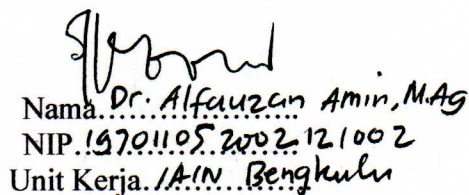 Nama Dr. Alfauzan Amin, M.Ag
NIP. 197011052002121002
Unit Kerja. IAIN Bengkulu